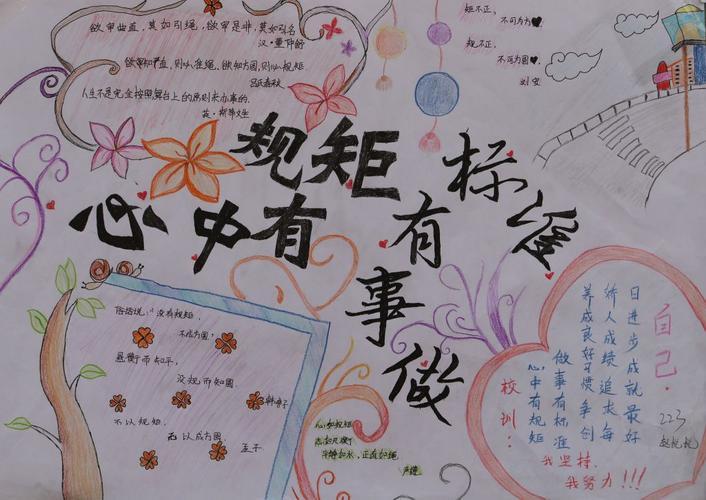 欲审曲直，莫如引绳，欲审是非，莫如引名
汉·董仲舒
欲知平直，则必准绳，欲知方圆，则必规矩
吕氏春秋
人生不是完全按照舞台上的原则来办事的.
英·斯蒂文生
矩不正，
不可为方
规不正，
不可为圆
刘安
心中有规矩
做事有标准
俗话说，没有规矩，
不成方圆，
悬衡而知平，
没规而知圆
韩非子
不以规矩，
无以成方圆
孟子
心如规矩
志如尺衡
平静如水，正直如绳
严遵
自己·
日进步成就最好
骄人成绩追求每
养成良好习惯争创
做事有标准
心中有规矩
校训：
我坚持，
我努力!!!
223